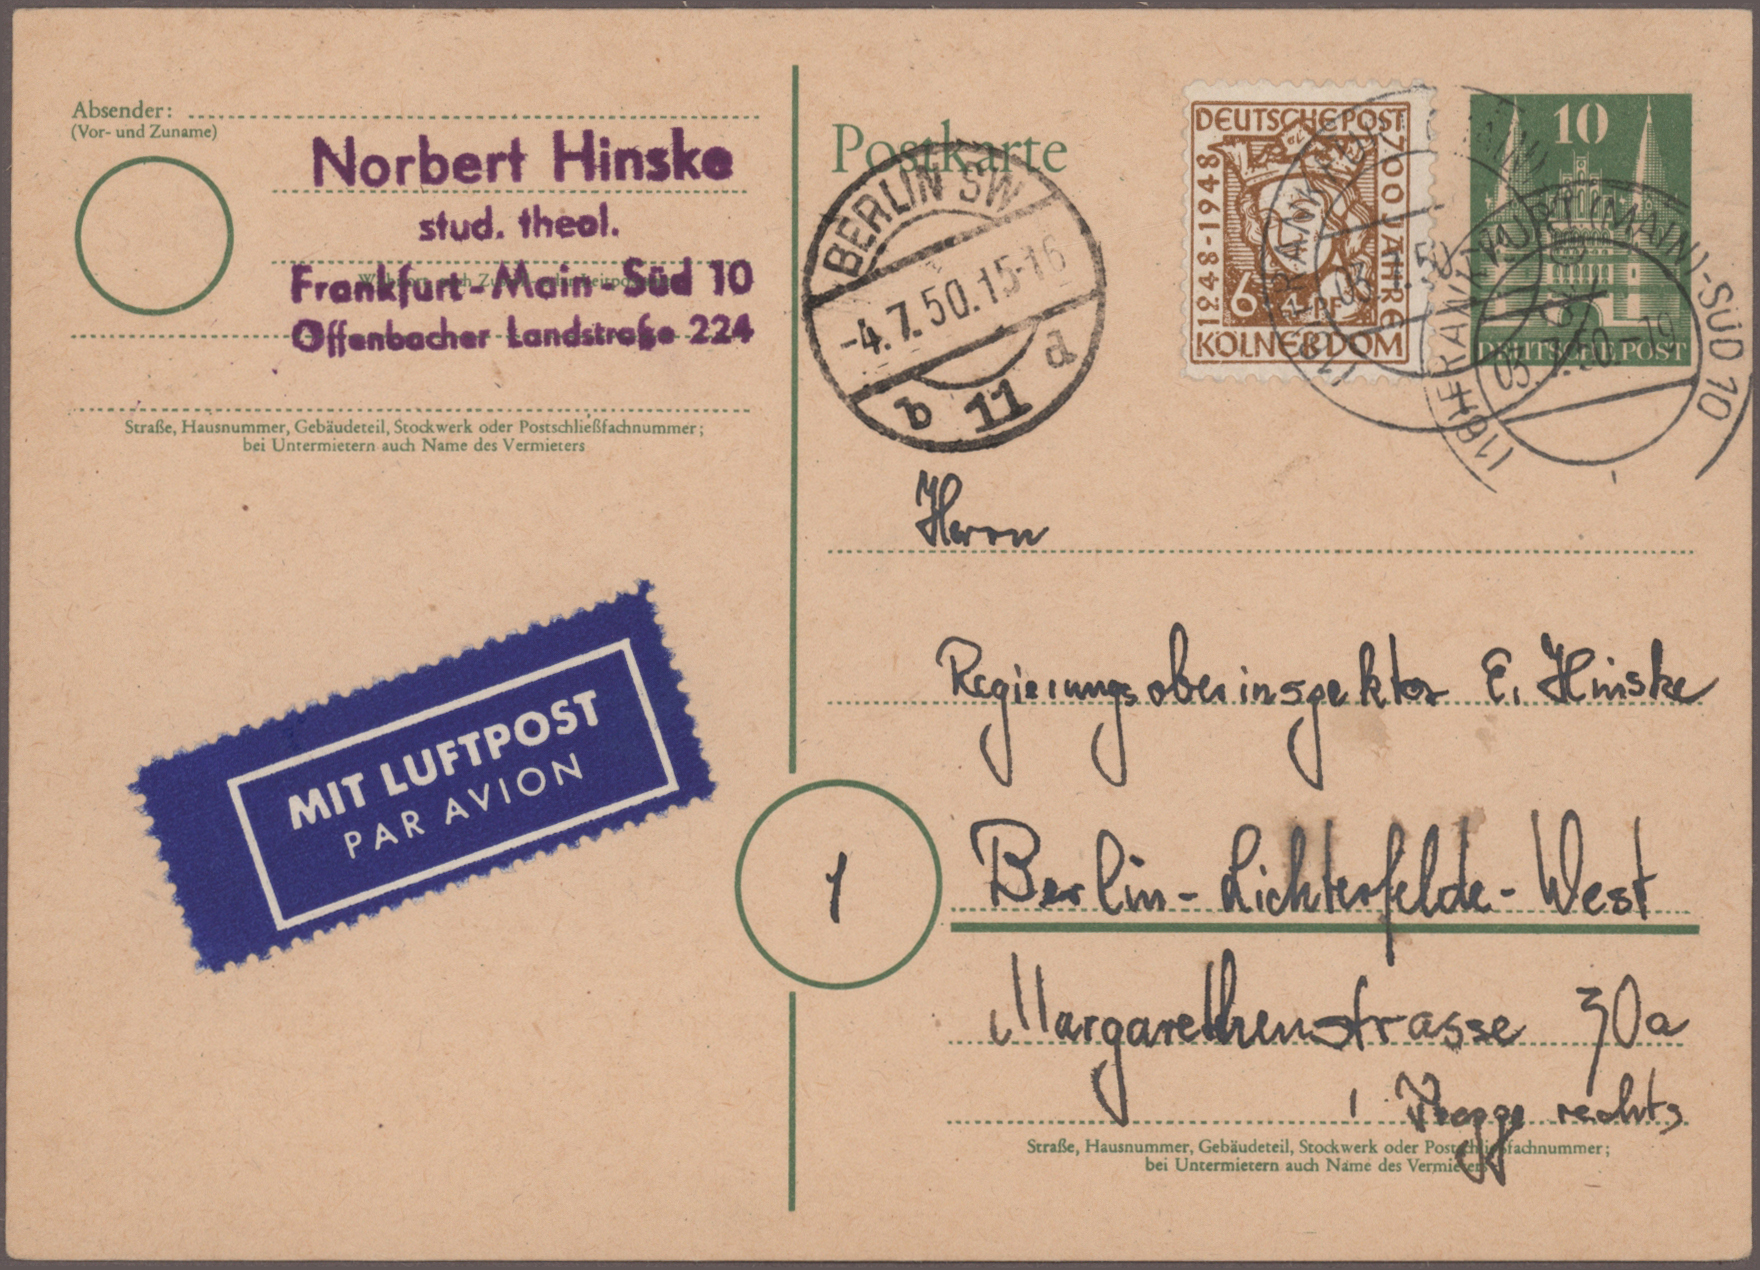 Absender:
(Vor- und Zuname)
Norbert Hinske
stud. theol.
Frankfurt-Main-Süd 10
Offenbacher Landstraße 224
Straße, Hausnummer, Gebäudeteil, Stockwerk oder Postschließfachnummer;
bei Untermietern auch Name des Vermieters
MIT LUFTPOST
PAR AVION
Postkarte
BERLIN SW
-4.7.50.15-16
b 11 d
DEUTSCHE POST
1248-1948
700 JAHRE
6 + 4 PF
KÖLNER DOM
10
DEUTSCHE POST
FRANKFURT (MAIN)-SÜD 10
03.7.50.-19
Herrn
Regierungsoberinspektor E. Hinske
1
Berlin-Lichterfelde-West
Margarethenstrasse 30a
rechts
Straße, Hausnummer, Gebäudeteil, Stockwerk oder Postschließfachnummer;
bei Untermietern auch Name des Vermieters